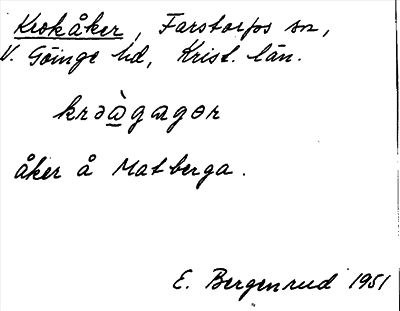 Krokåker, Farstorps sn,
V. Göinge hd, Krist. län.
krəὰgagər
åker å Matberga.
E. Bergenrud 1951